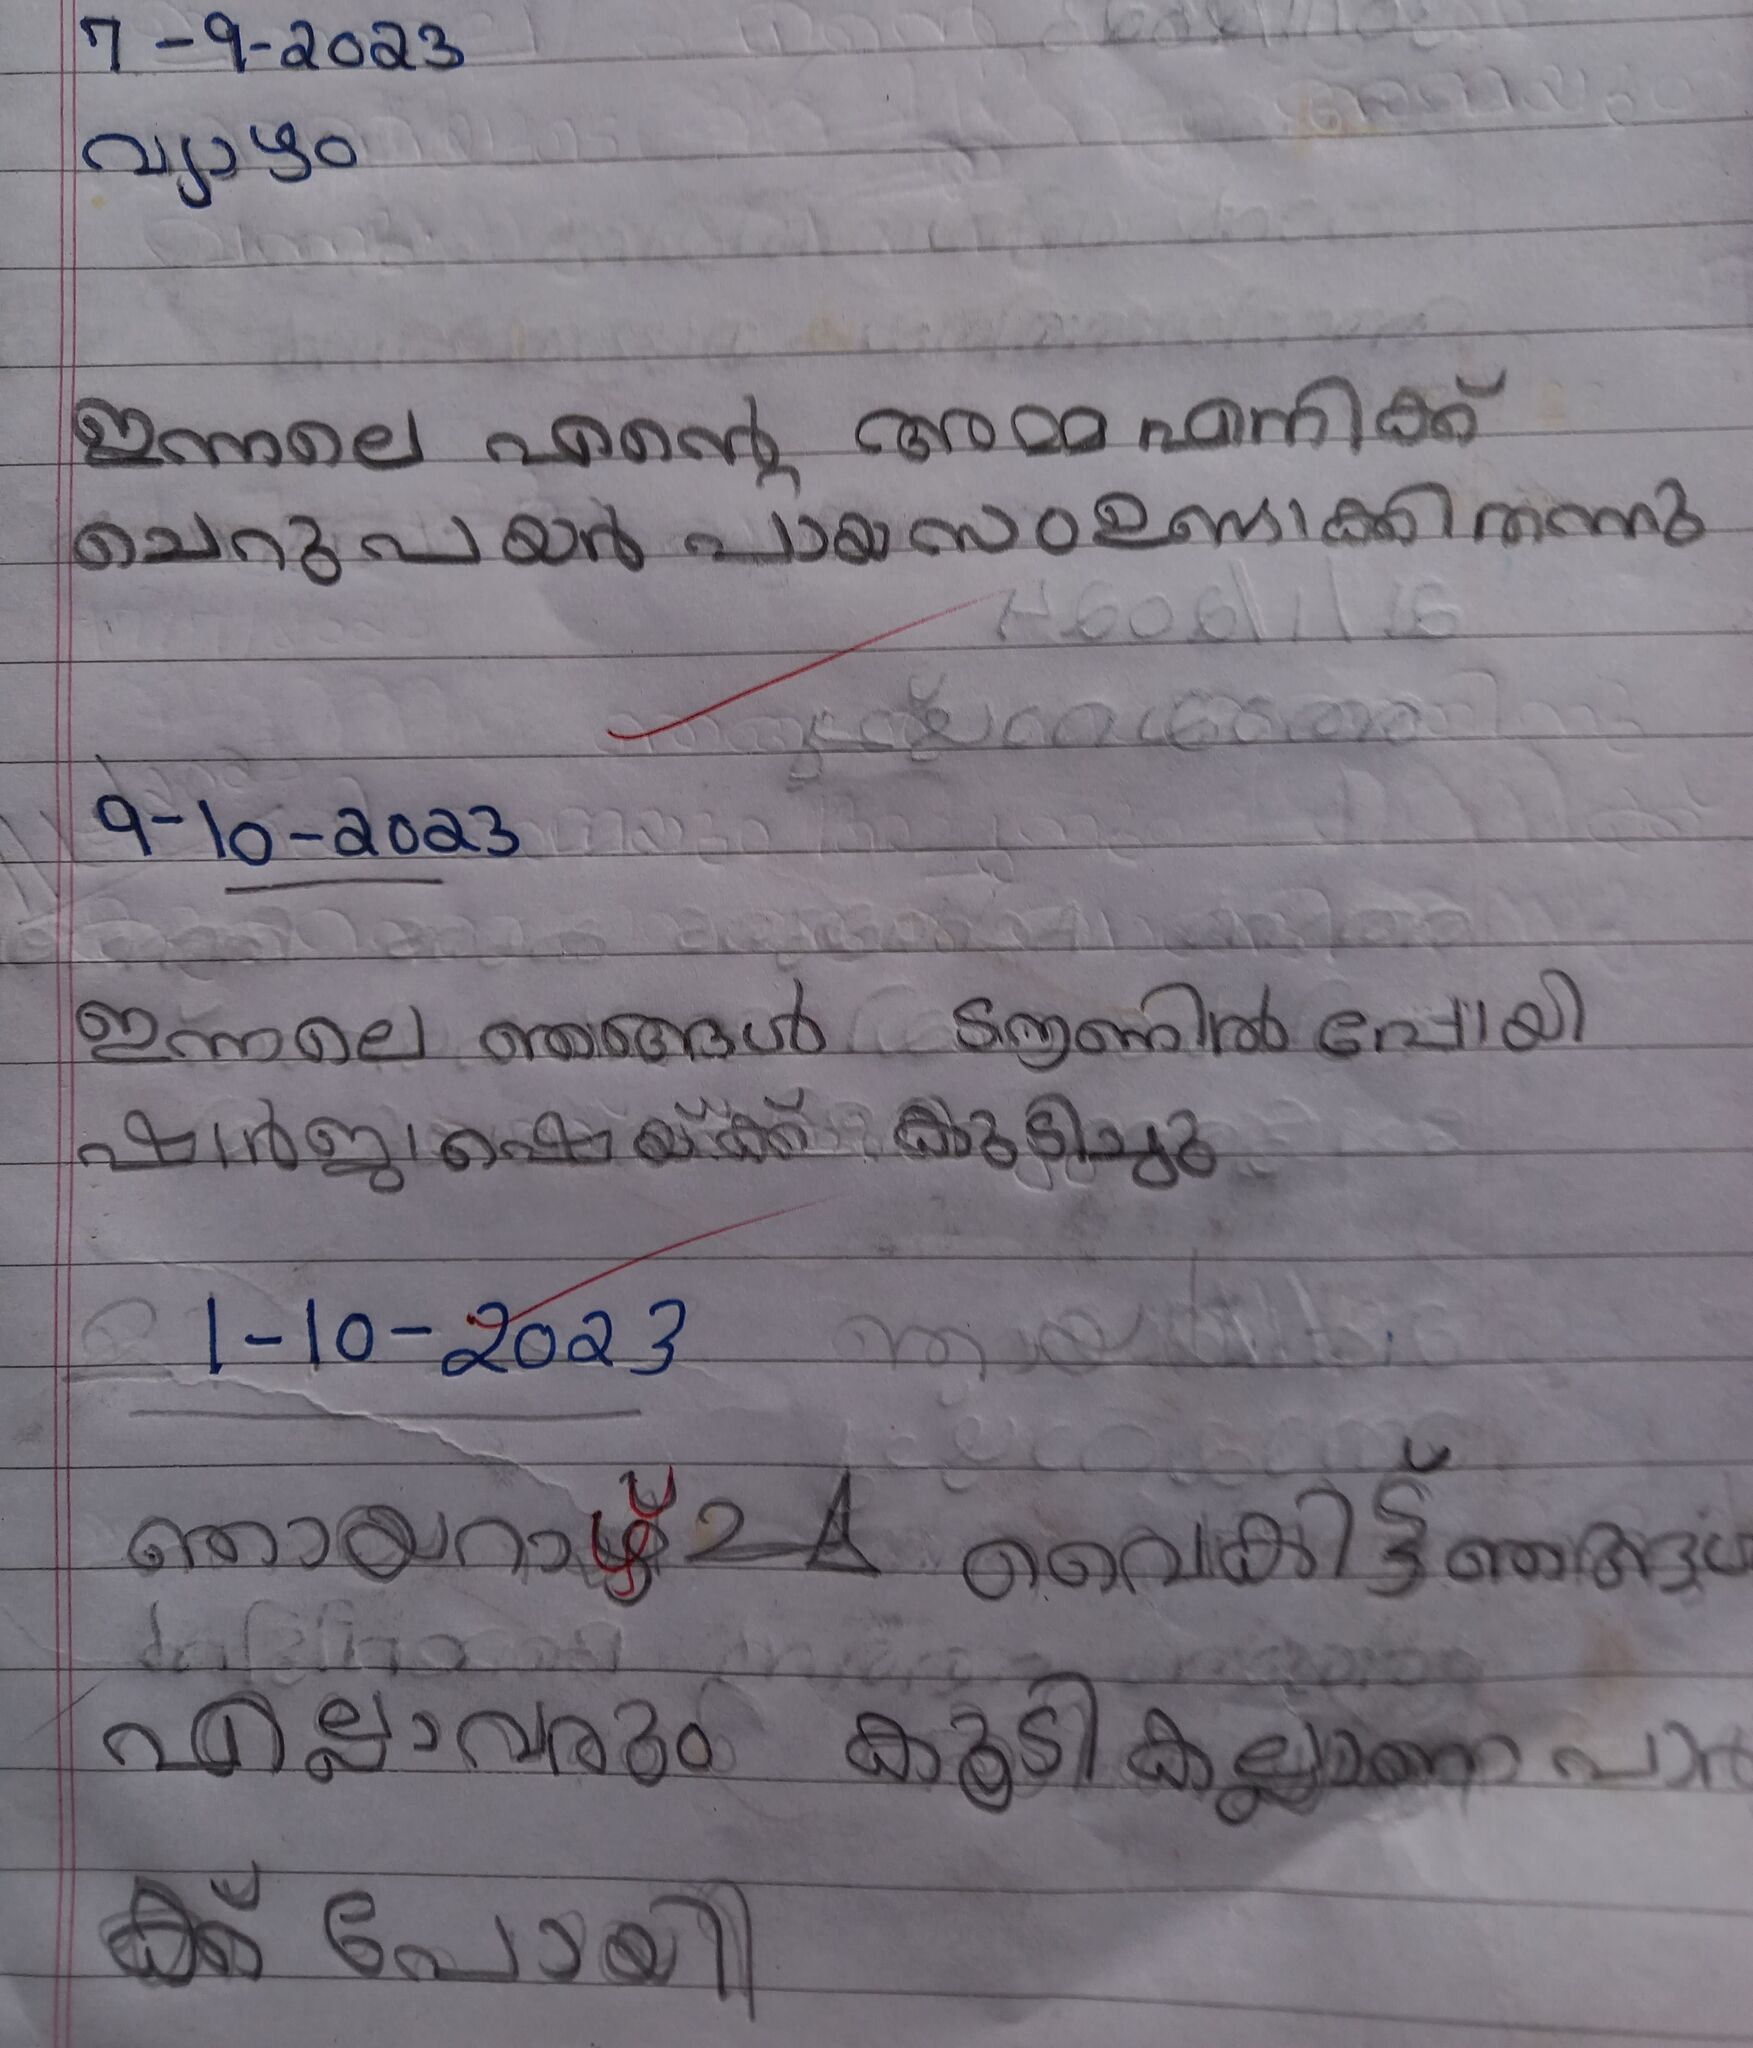 7-9-2023
വ്യാഴം
ഇന്നലെ എന്റെ അമ്മ എനിക്ക്
ചെറുപയർ പായസം ഉണ്ടാക്കി തന്നു
9-10-2023
ഇന്നലെ ഞങ്ങൾ ടൗണിൽ പോയി
ഷാർജ ഷെയ്ക്ക് കുടിച്ചു
1-10-2023
ഞായറാഴ്ച വൈകിട്ട് ഞങ്ങൾ
എല്ലാവരും കൂടി കല്ല്യാണ പാർ
ക്ക് പോയി